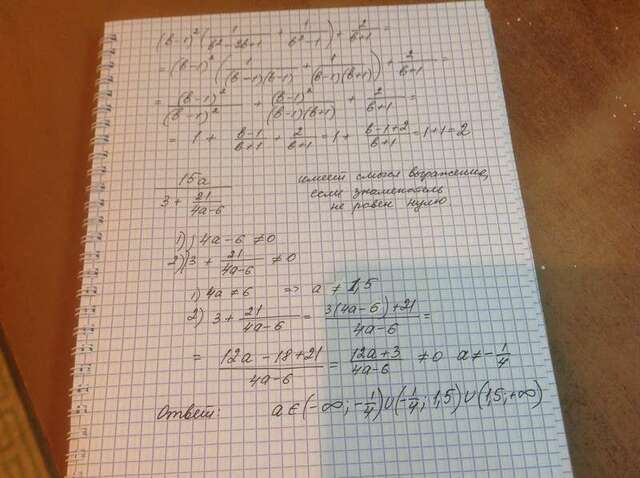 (b-1)²(1/(b²-2b+1) + 1/(b²-1)) + 2/(b+1) =
= (b-1)² (1/((b-1)(b-1)) + 1/((b-1)(b+1))) + 2/(b+1) =
= (b-1)²/(b-1)² + (b-1)²/((b-1)(b+1)) + 2/(b+1) =
= 1 + (b-1)/(b+1) + 2/(b+1) = 1 + (b-1+2)/(b+1) = 1+1 = 2
15a/(3 + 21/(4a-6)) имеет смысл выражение,
если знаменатель
не равен нулю
1) 4a-6 ≠ 0
2) 3 + 21/(4a-6) ≠ 0
1) 4a ≠ 6 => a ≠ 1,5
2) 3 + 21/(4a-6) = (3(4a-6)+21)/(4a-6) =
= (12a-18+21)/(4a-6) = (12a+3)/(4a-6) ≠ 0 a ≠ -1/4
Ответ: a∈(-∞; -1/4)∪(-1/4; 1,5)∪(1,5; +∞)